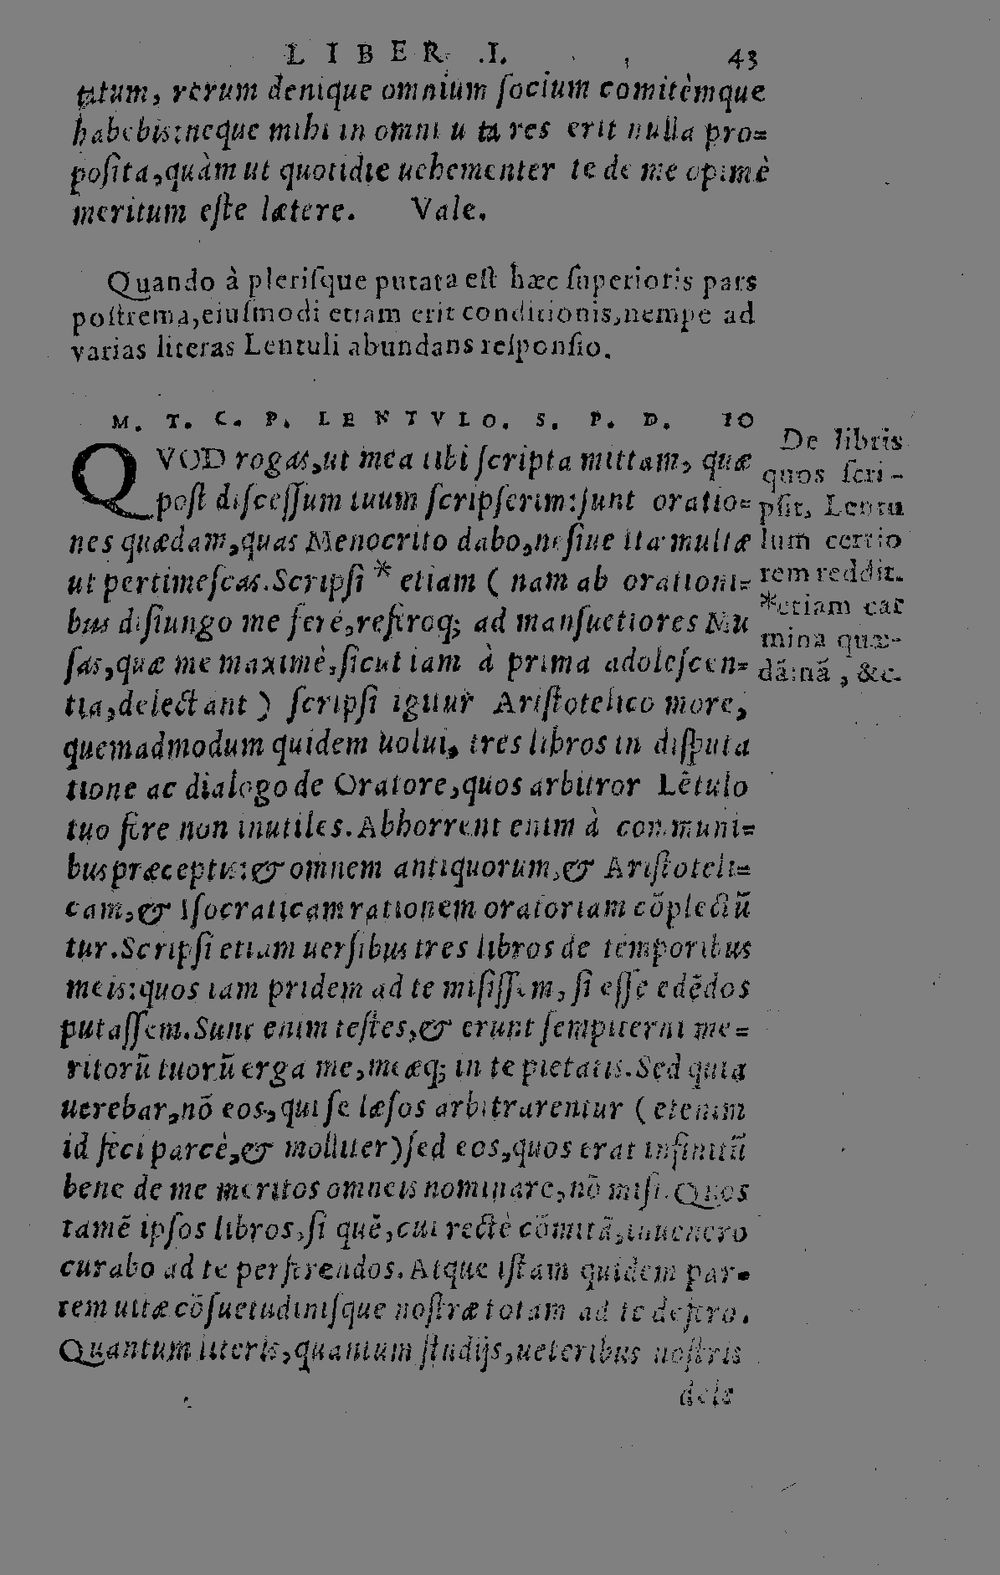 LIBER .I. 43
tatum, rerum denique omnium socium comitèmque
habebis: neque mihi in omni uita res erit nulla pro=
posita, quàm ut quotidie uehementer te de me optimè
meritum esse lætere. Vale.
Quando à plerisque putata est hæc superioris pars
postrema, eiusmodi etiam erit conditionis, nempe ad
varias literas Lentuli abundans responsio.
M. T. C. P. LENTVLO. S. P. D. 10
QVOD rogas, ut mea tibi scripta mittam, quæ
post discessum tuum scripserim: sunt oratio=
nes quædam, quas Menocrito dabo, ne siue ita multæ
ut pertimescas. Scripsi * etiam ( nam ab orationi=
bus disiungo me ferè, referoq; ad mansuetiores Mu
sas, quæ me maximè, sicut iam à prima adolescen=
tia, delectant ) scripsi igitur Aristotelico more,
quemadmodum quidem uolui, tres libros in disputa
tione ac dialogo de Oratore, quos arbitror Lētulo
tuo fere non inutiles. Abhorrent enim à communi=
bus præceptis: & omnem antiquorum, & Aristoteli=
cam, & Isocraticam rationem oratoriam cōplectū
tur. Scripsi etiam uersibus tres libros de temporibus
meis: quos iam pridem ad te misissem, si esse edēdos
putassem. Sunt enim testes, & erunt sempiterni me=
ritorū tuorū erga me, meæq; in te pietatis. Sed quia
uerebar, nō eos, qui se læsos arbitrarentur ( etenim
id feci parcè, & molliter) sed eos, quos erat infinitū
bene de me meritos omneis nominare, nō misi. Quos
tamē ipsos libros, si quē, cui rectè cōmitā, inuenero
curabo ad te perferendos. Atque istam quidem par=
tem uitæ cōsuetudinisque nostræ totam ad te defero.
Quantum literis, quantum studijs, ueteribus nostris
dele
De libris
quos scri-
psit, Lentu
lum certio
rem reddit.
*etiam car
mina quæ-
dā: nā, &c.